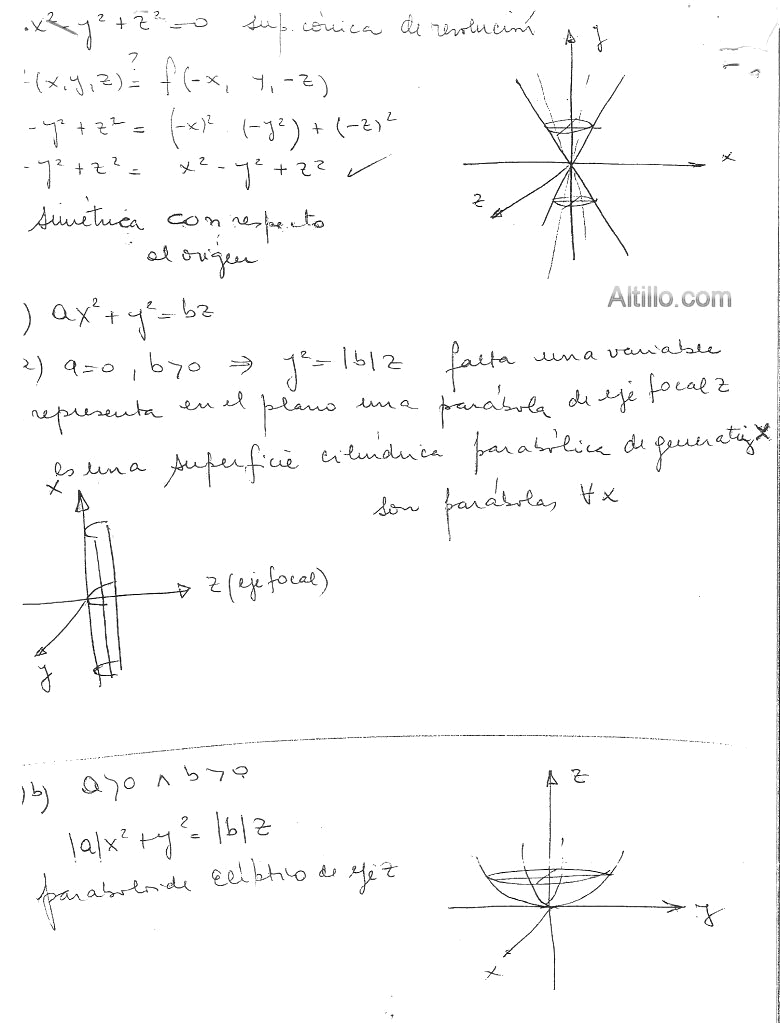 .x² - y² + z² = 0 sup. cónica de revolución
(x, y, z) ?= f(-x, y, -z)
- y² + z² = (-x)² (-y²) + (-z)²
- y² + z² = x² - y² + z² ✓
Simétrica con respecto
al origen
y
x
z
Altillo.com
) ax² + y² = bz
2) a=0, b>0 ⇒ y² = |b| z falta una variable
representa en el plano una parábola de eje focal z
es una superficie cilíndrica parabólica de generatriz x
son parábolas ∀x
x
z (eje focal)
y
1b) a>0 ∧ b>0
|a|x² + y² = |b| z
paraboloide elíptico de eje z
z
y
x